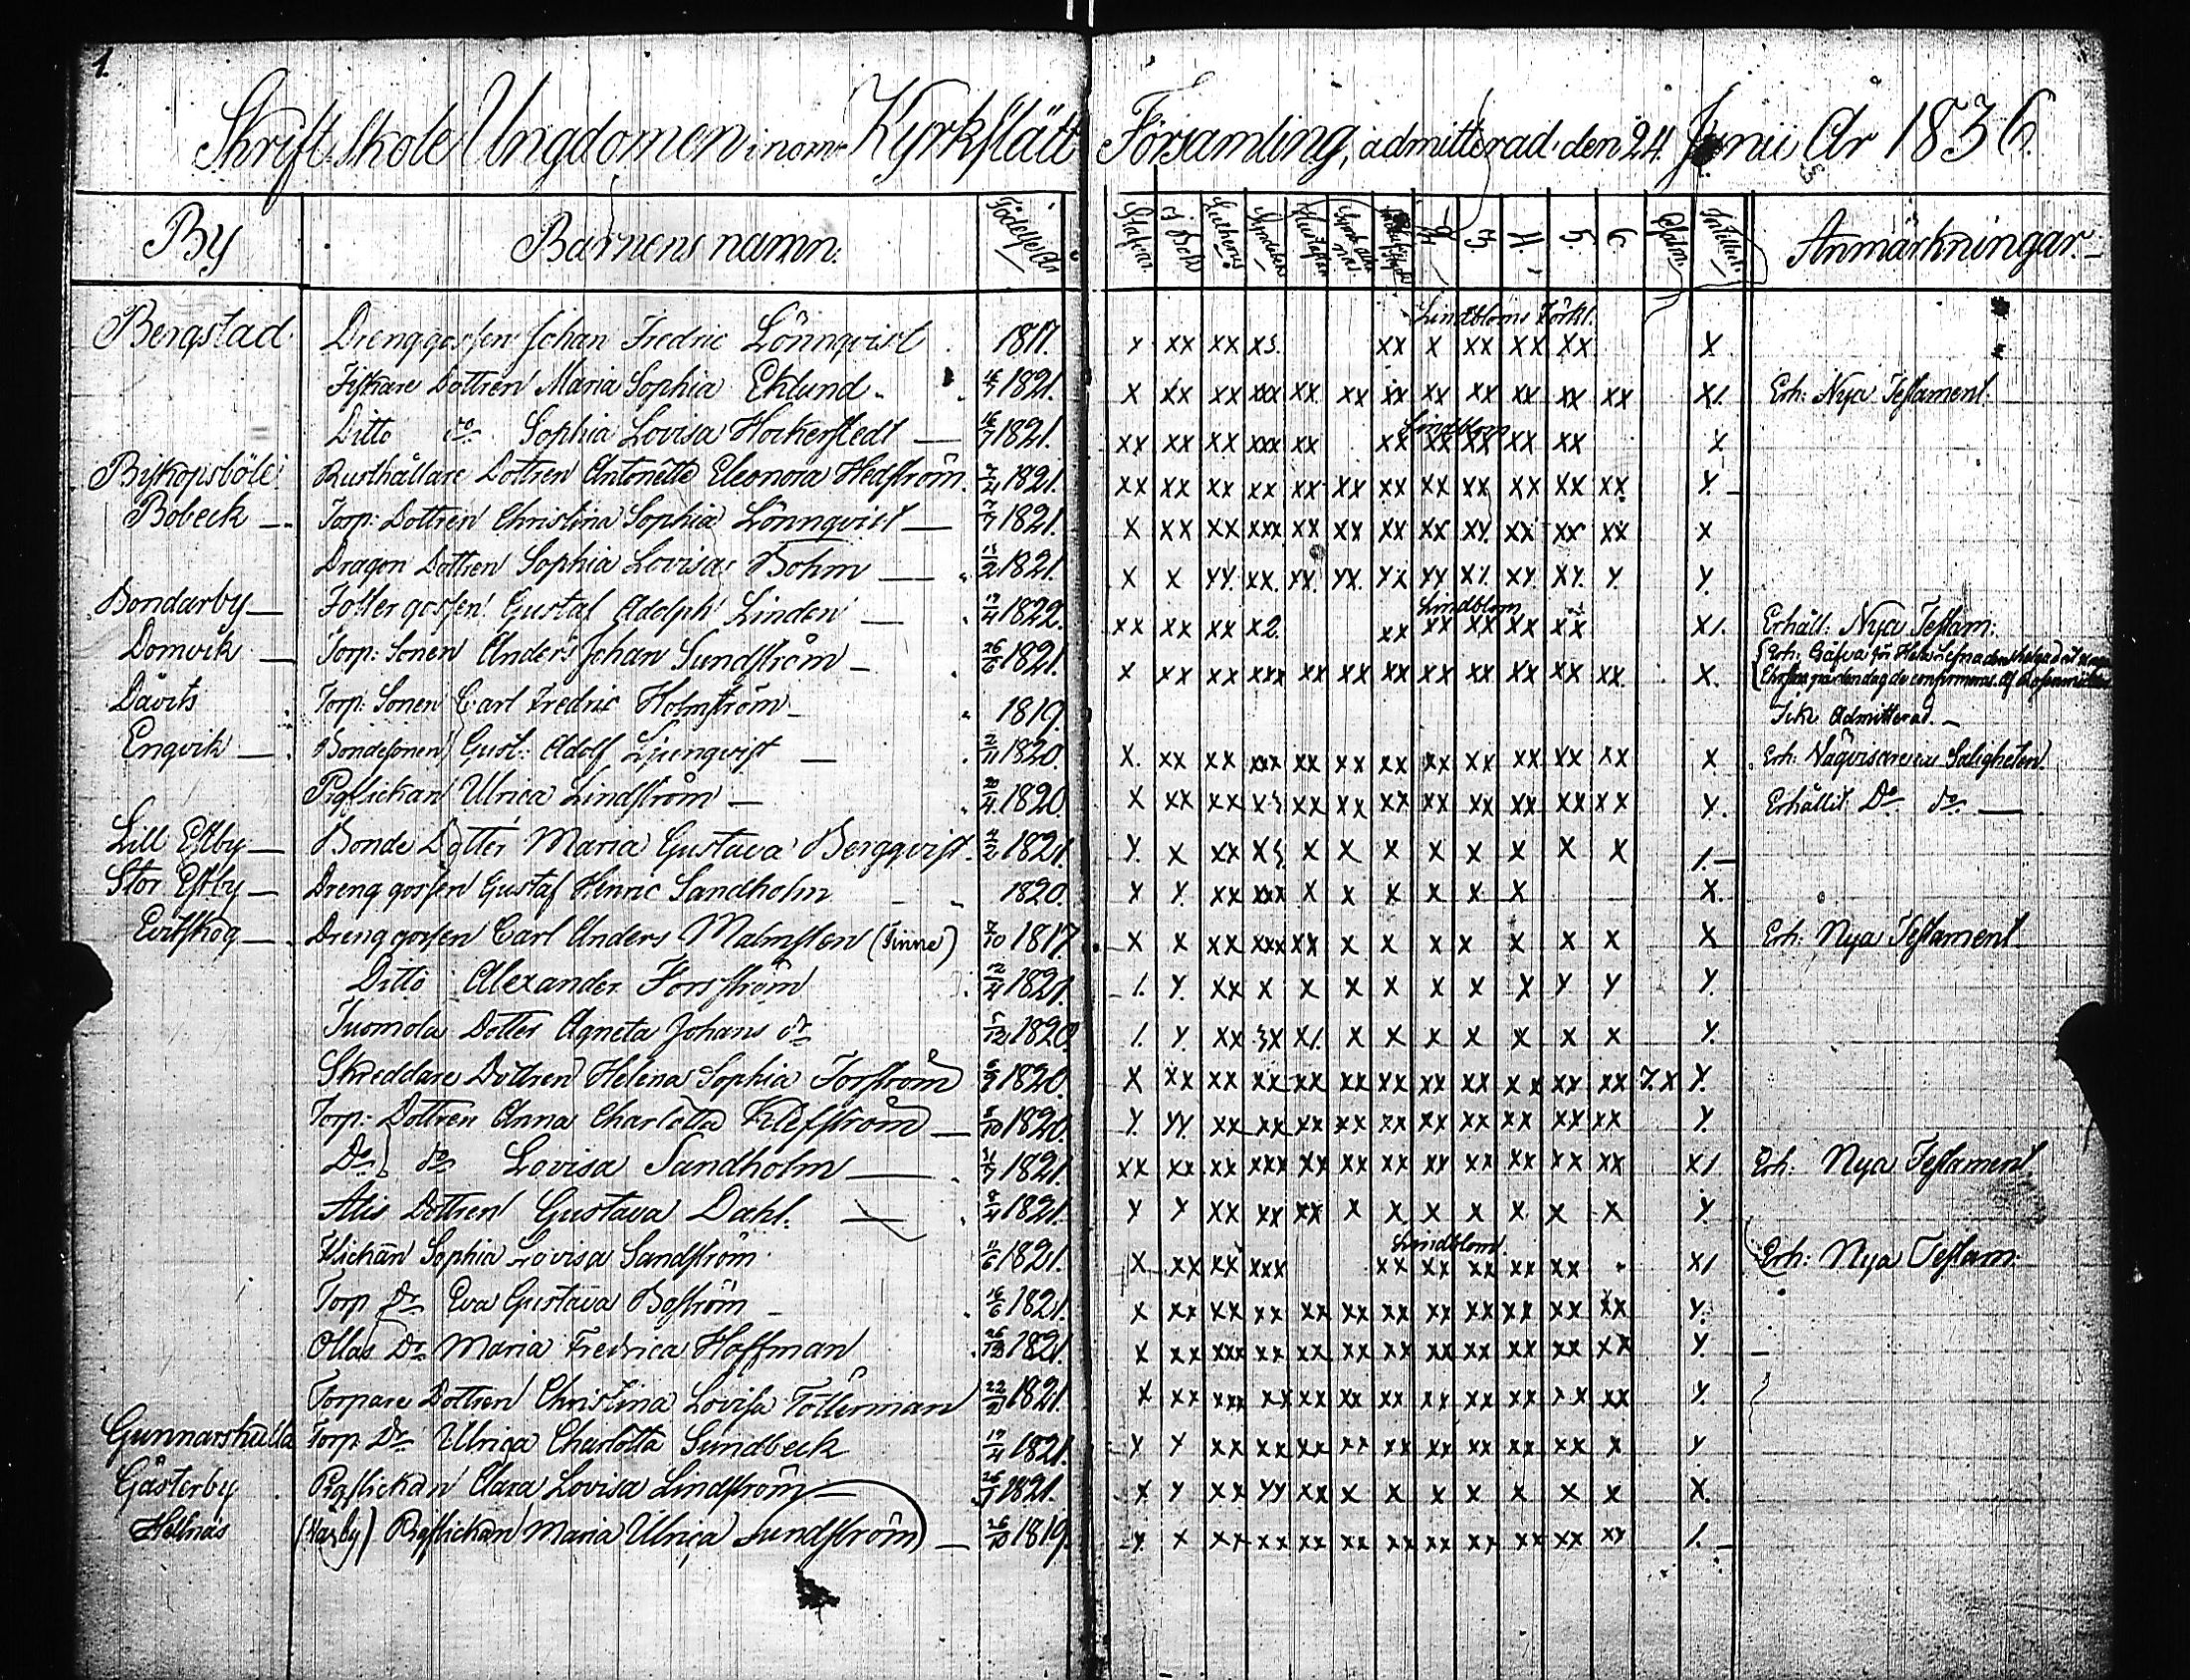 1.
Skrift skole Ungdomen inom Kyrkslätt Församling, admitterad den 24 Junii År 1836.
By Barnens namn. Födelseår Stafvar. i Bok Lutheri Hustaflan 2. 3. 4. 5. 6. Intellect. Anmärkningar.
Lindbloms Förkl.
Bergstad Drenggossen Johan Fredric Lönnqvist 1817. x xx xx x xx x xx xx xx x
Fiskare Dottren Maria Sophia Eklund 1821. x xx xx xxx xx xx xx xx xx xx xx xx x1. Erh: Nya Testament.
Lindblom
Ditto do Sophia Lovisa Hockerstedt 16/7 1821. xx xx xx xxx xx xx xx xx xx xx x
Biskopsböle Rusthållare Dottren Antonette Eleonora Hedström 1821. xx xx xx xx xx xx xx xx xx xx xx xx x
Bobeck Torp: Dottren Christina Sophia Lönnqvist 1821. x xx xx xxx xx xx xx xx xx xx xx xx x
Dragon Dottren Sophia Lovisa Bohm 1821. x x xx xx xx xx xx xx xx xx xx x x
Lindblom
Bondarby Foster gossen Gustaf Adolph Linden 1822. xx xx xx x2 xx xx xx xx xx x1. Erhåll: Nya Testam:
Domvik Torp: Sonen Anders Johan Sundström 26/6 1821. x xx xx xxx xx xx xx xx xx xx xx xx x. Erh: Gåfva
på den dag de confirmeras. af
Davits Torp: Sonen Carl Fredric Holmström 1819. Icke Admitterad.
Engvik Bondesonen Gust: Adolf Ljungqvist 2/11 1820. x. xx xx xxx xx xx xx xx xx xx xx xx x Erh: Vägvisare Saligheten.
Pigflickan Ulrica Lindström 20/4 1820. x xx xx x xx xx xx xx xx xx xx xx x. Erhållit Do do
Lill Estby Bonde Dotter Maria Gustava Bergqvist 1821. x x xx x x x x x x x x x 1.
Stor Estby Dreng gossen Gustaf Henric Sandholm 1820. x x xx xxx x x x x x x x.
Evitskog Dreng gossen Carl Anders Malmsten (Finne) 1817 x x xx xxx xx x x x x x x x x Erh: Nya Testament.
Ditto Alexander Forsström 12/4 1821. 1. x xx x x x x x x x x x x.
Tuomola Dotter Agneta Johans dr 5/12 1820. 1. x xx x x1. x x x x x x x x.
Skreddare Dottren Helena Sophia Forström 1820. x xx xx xx xx xx xx xx xx xx xx xx x x.
Torp: Dottren Anna Charlotta Klefström 1820. x xx xx xx xx xx xx xx xx xx xx xx x.
Do do Lovisa Sandholm 1821. xx xx xx xxx xx xx xx xx xx xx xx xx x1 Erh: Nya Testament.
Dottren Gustava Dahl. 1821. x x xx xx xx x x x x x x x x.
Lindblom.
Flickan Sophia Lovisa Sandström 11/6 1821. x xx xx xxx xx xx xx xx xx x1 Erh: Nya Testam:
Torp dr Eva Gustava Boström 16/6 1821. x xx xx xx xx xx xx xx xx xx xx xx x.
Ollas Dr Maria Fredrica Hoffman 26/12 1821. x xx xxx xx xx xx xx xx xx xx xx xx x.
Torpare Dottren Christina Lovisa Töllerman 1821. x xx xxx xx xx xx xx xx xx xx xx xx x.
Gunnarskulla Torp Dr Ulrica Charlotta Sundbeck 1821. x x xx xx xx xx xx xx xx xx xx x x
Gästerby Pigflickan Clara Lovisa Lindström 1821. x x xx xx xx x x x x x x x x.
Helnäs Maria Ulrica Sundström 1819. x. x xx xx xx xx xx xx xx xx xx xx 1.